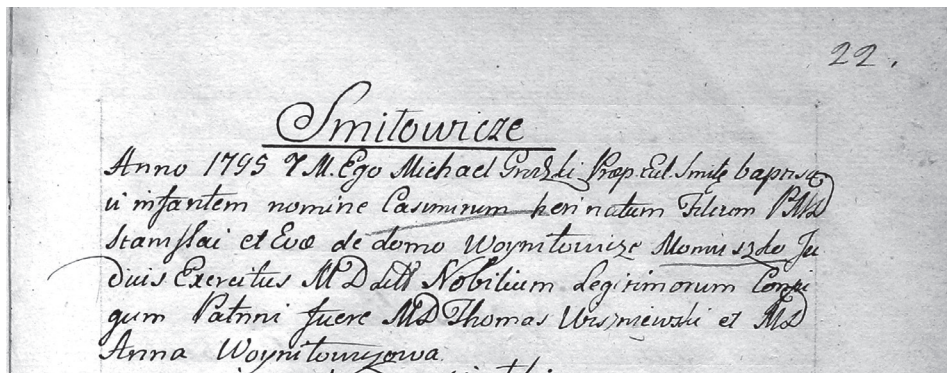 22.
Smiłowicze
Anno 1795 7 M. Ego Michael Præp. Ecl. Smiłę baptisa
vi infantem nomine Casimirum heri natum Filium PMD
Stanislai et Evæ de domo Moniuszko Ju
Exercitus M D Nobilium Legitimorum Conju
gum Patrini fuere MD Thomas Wiszniewski et MD
Anna Woyniłowizowa